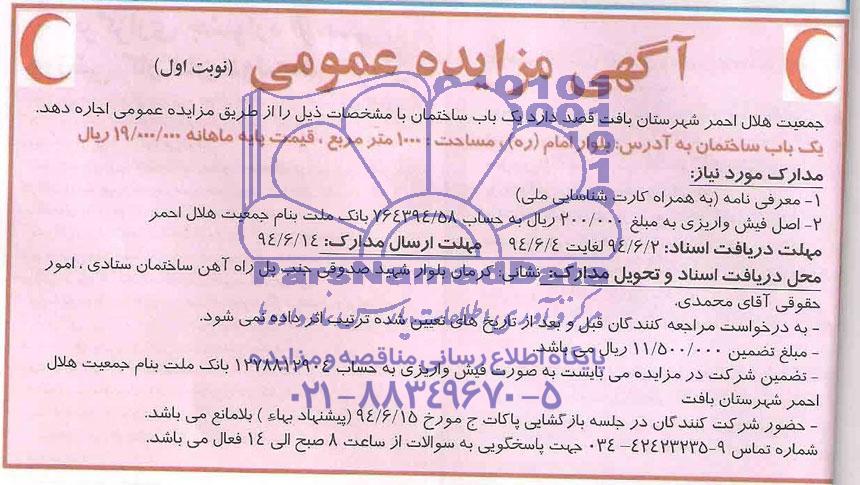 آگهی مزایده عمومی (نوبت اول)
جمعیت هلال احمر شهرستان بافت قصد دارد یک باب ساختمان با مشخصات ذیل را از طریق مزایده عمومی اجاره دهد.
یک باب ساختمان به آدرس: بلوار امام (ره) ، مساحت : ۱۰۰۰ متر مربع ، قیمت پایه ماهانه ۱۹/۰۰۰/۰۰۰ ریال
مدارک مورد نیاز:
۱- معرفی نامه (به همراه کارت شناسایی ملی)
۲- اصل فیش واریزی به مبلغ ۲۰۰/۰۰۰ ریال به حساب ۷۶۴۳۹۴/۵۸ بانک ملت بنام جمعیت هلال احمر
مهلت دریافت اسناد: ۹۴/۶/۲ لغایت ۹۴/۶/۴ مهلت ارسال مدارک: ۹۴/۶/۱۴
محل دریافت اسناد و تحویل مدارک: نشانی: کرمان بلوار شهید صدوقی جنب پل راه آهن ساختمان ستادی ، امور
حقوقی آقای محمدی.
- به درخواست مراجعه کنندگان قبل و بعد از تاریخ های تعیین شده ترتیب اثر داده نمی شود.
- مبلغ تضمین ۱۱/۵۰۰/۰۰۰ ریال می باشد.
- تضمین شرکت در مزایده می بایست به صورت فیش واریزی به حساب ۱۲۷۸۸۱۲۹۰۴ بانک ملت بنام جمعیت هلال
احمر شهرستان بافت
- حضور شرکت کنندگان در جلسه بازگشایی پاکات ج مورخ ۹۴/۶/۱۵ (پیشنهاد بهاء ) بلامانع می باشد.
شماره تماس ۹-۴۲۴۲۳۲۳۵- ۰۳۴ جهت پاسخگویی به سوالات از ساعت ۸ صبح الی ۱۴ فعال می باشد.
ParsNamadData
پایگاه اطلاع رسانی مناقصه و مزایده
۰۲۱-۸۸۳۴۹۶۷۰-۵